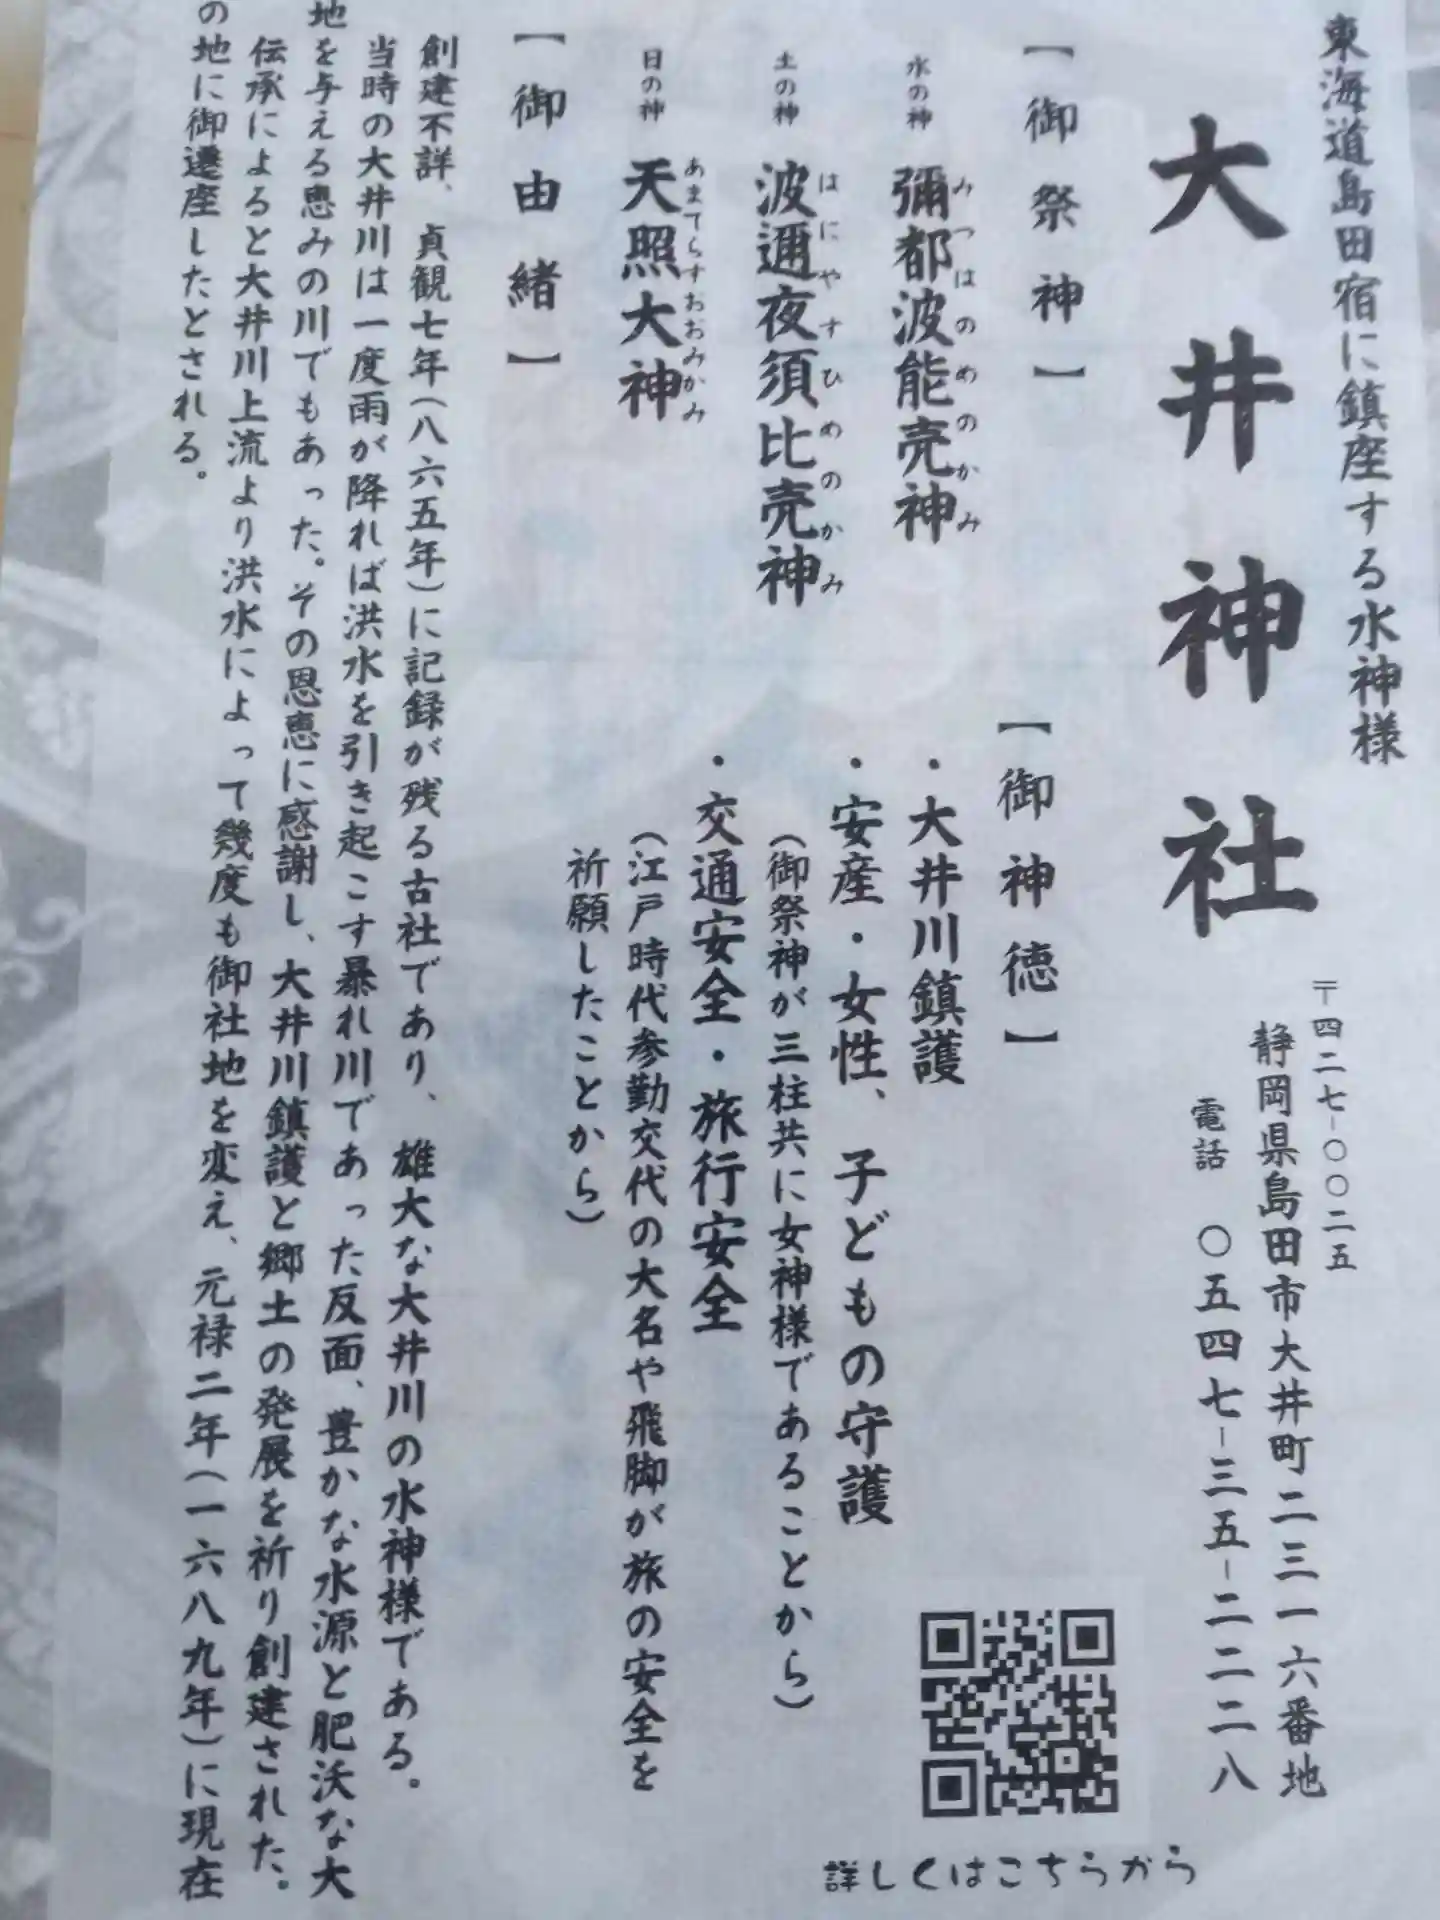 東海道島田宿に鎮座する水神様
大井神社
〒四二七-〇〇二五
静岡県島田市大井町二三一六番地
電話 〇五四七-三五-二二二八
【御祭神】
水の神 彌都波能売神
みつはのめのかみ
土の神 波邇夜須比売神
はにやすひめのかみ
日の神 天照大神
あまてらすおおみかみ
【御神徳】
・大井川鎮護
・安産・女性、子どもの守護
(御祭神が三柱共に女神様であることから)
・交通安全・旅行安全
(江戸時代参勤交代の大名や飛脚が旅の安全を
祈願したことから)
【御由緒】
創建不詳、貞観七年(八六五年)に記録が残る古社であり、雄大な大井川の水神様である。
当時の大井川は一度雨が降れば洪水を引き起こす暴れ川であった反面、豊かな水源と肥沃な大
地を与える恵みの川でもあった。その恩恵に感謝し、大井川鎮護と郷土の発展を祈り創建された。
伝承によると大井川上流より洪水によって幾度も御社地を変え、元禄二年(一六八九年)に現在
の地に御遷座したとされる。
詳しくはこちらから